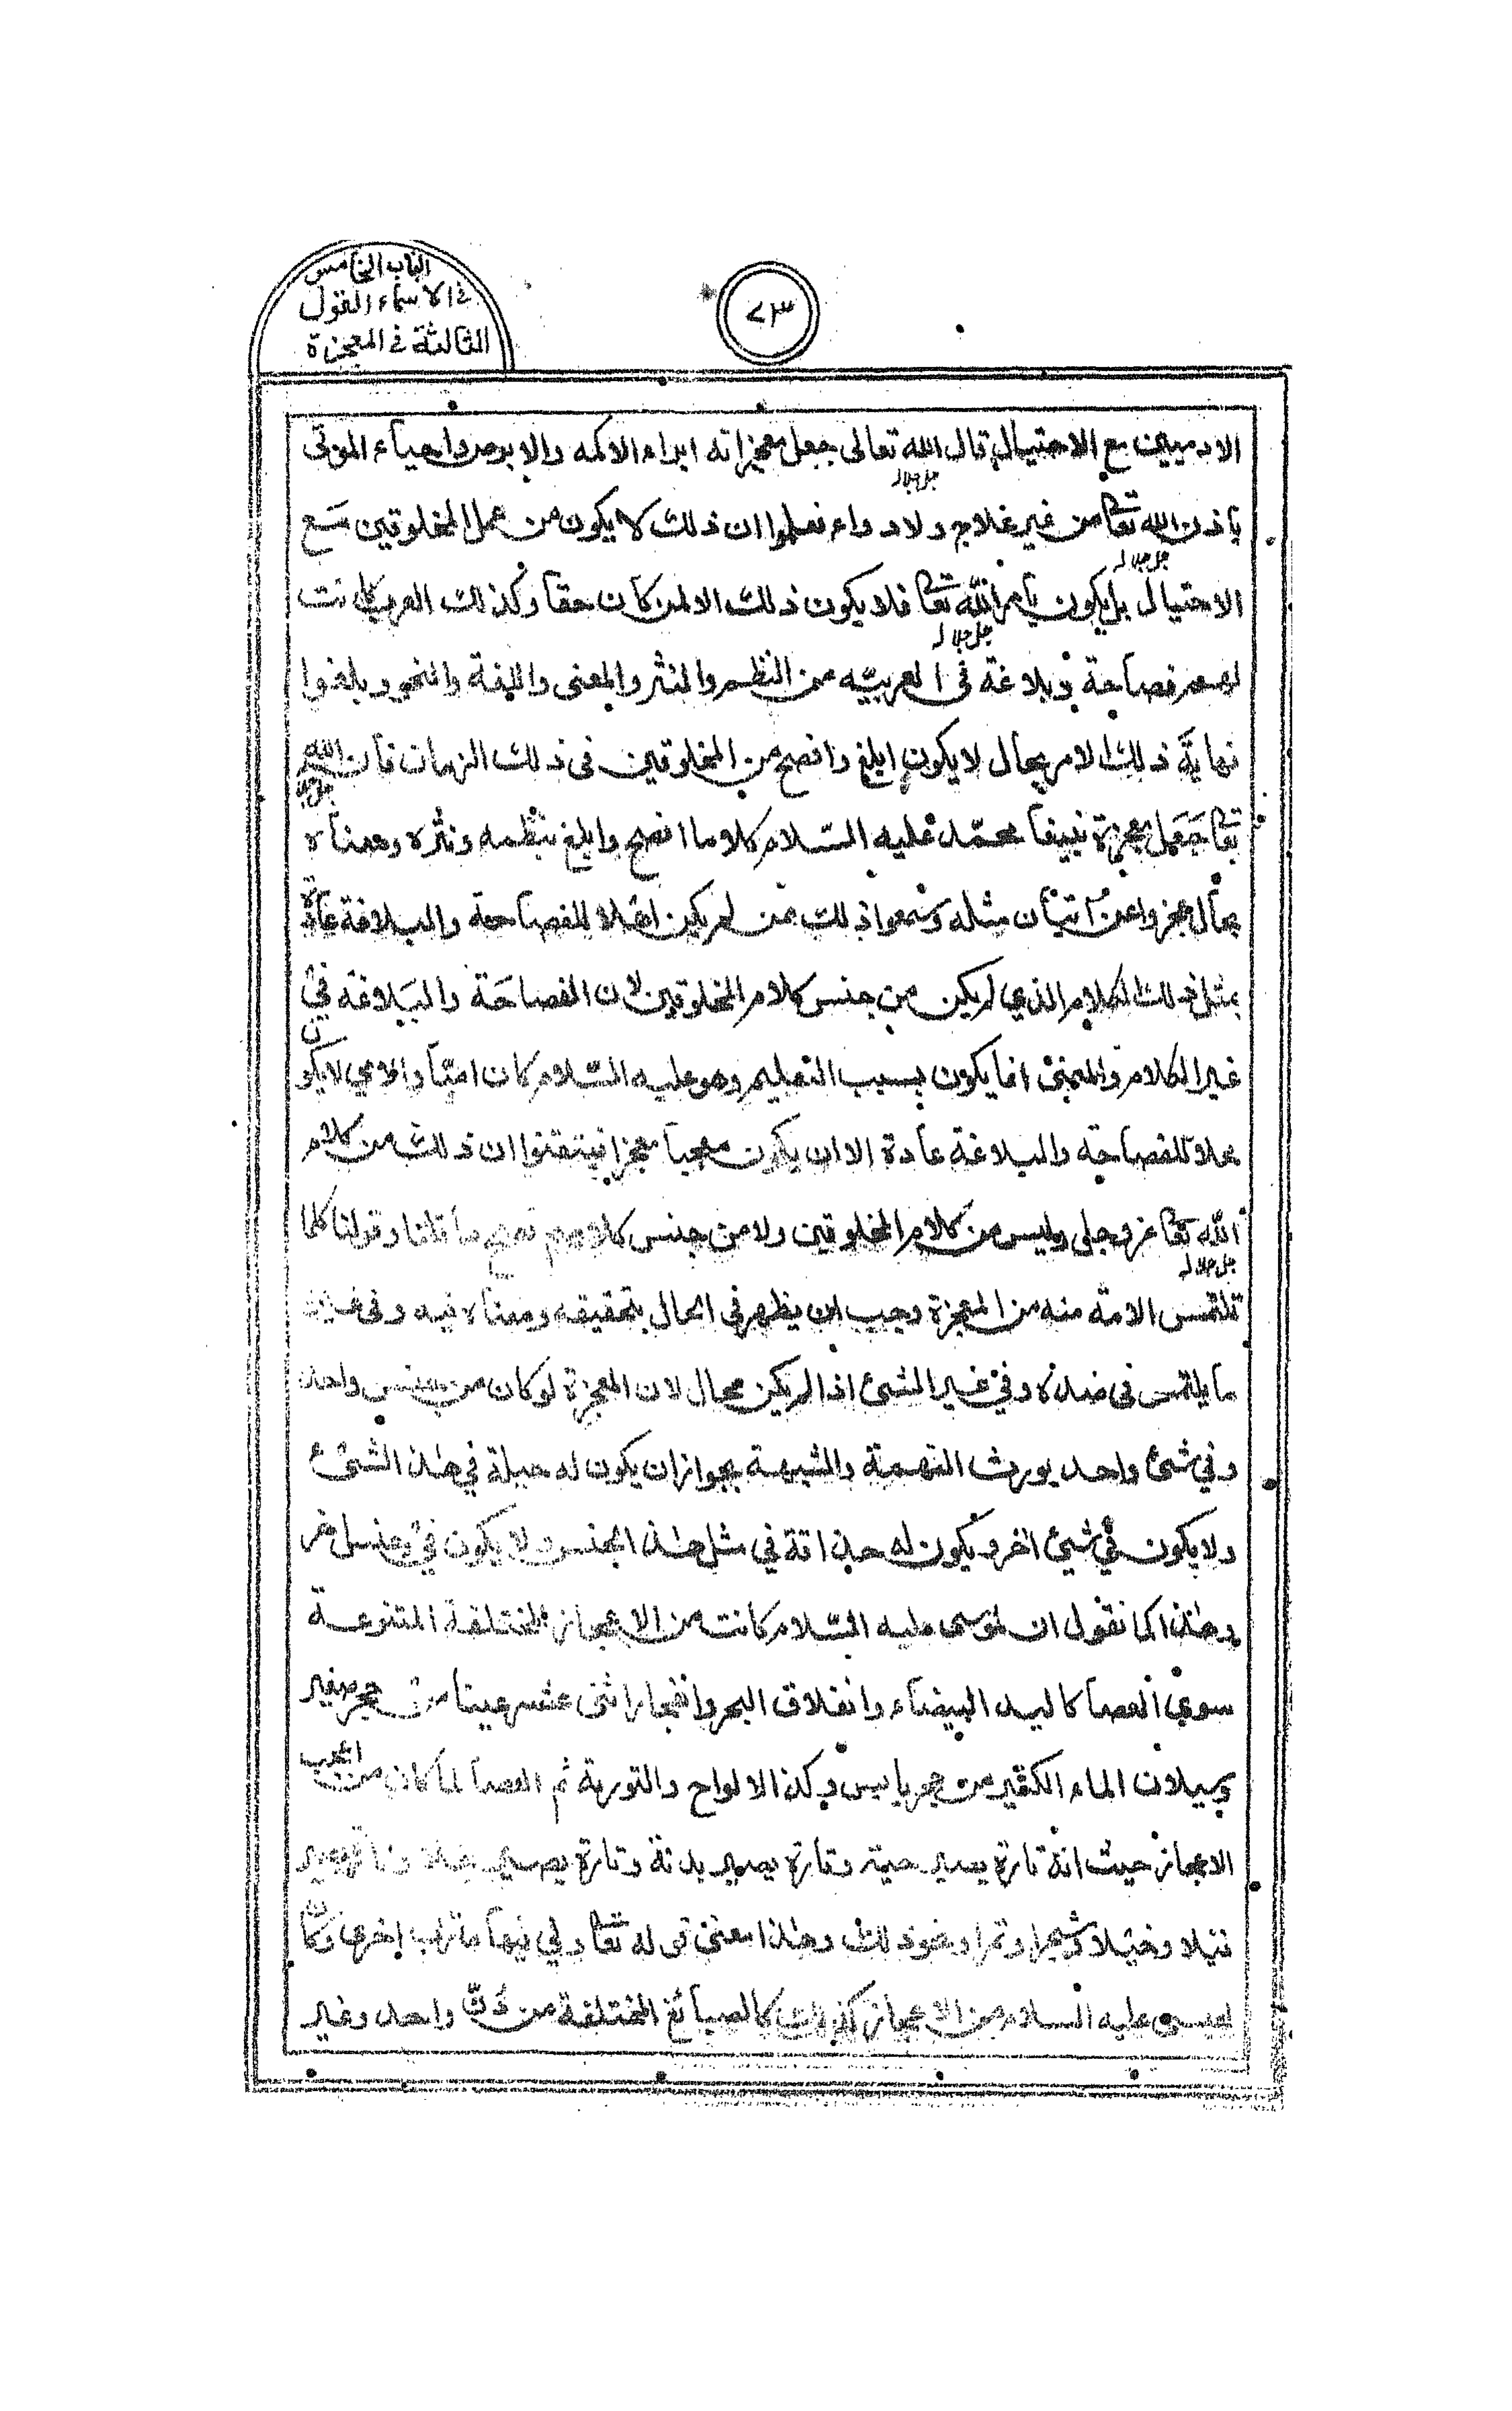 الباب الخامس
في الاسماء القول
الثالثة في المعجزة
٧٣
الادميين مع الاحتيال قال الله تعالى جعل معجزاته ابراء الاكمه والابرص واحياء الموتى
جل جلاله
باذن الله تعا من غير علاج ولا دواء فعلموا ان ذلك لا يكون من عمل المخلوقين مع
جل جلاله
الاحتيال بل يكون بامر الله تعا فلا يكون ذلك الا لمن كان حقا وكذلك العرب كانت
جل جلاله
لهم فصاحة وبلاغة في العربيه من النظم والنثر والمعنى واللغة والنحو وبلغوا
نهاية ذلك الامر بحال لا يكون ابلغ وافصح من المخلوقين في ذلك الزمان فان الله
جل جلاله
تعا جعل معجزة نبينا محمد عليه السلام كلاما افصح وابلغ بنظمه ونثره ومعناه
بحال عجزوا عن اتيان مثله وسمعوا ذلك ممن لم يكن اهلا للفصاحة والبلاغة عادة
بمثل ذلك الكلام الذي لم يكن من جنس كلام المخلوقين لان الفصاحة والبلاغة في
غير الكلام والمعنى انما يكون بسبب التعليم وهو عليه السلام كان اميا والامي لا يكون
محلا للفصاحة والبلاغة عادة الا ان يكون معجزا فيتيقنوا ان ذلك من كلام
الله تعا عز وجل وليس من كلام المخلوقين ولا من جنس كلامهم فصح ما قلنا وقولنا كلما
جل جلاله
تلتمس الامة منه من المعجزة وجب ان يظهر في الحال بتحقيقه ومعناه فيه وفي
ما يلتمس في ضده وفي غير الشئ اذا لم يكن محال لان المعجزة لو كان من جنس واحد
وفي شئ واحد يورث التهمة والشبهة بجواز ان يكون له حيلة في هذا الشئ
ولا يكون في شئ اخر ويكون له حذاقة في مثل هذا الجنس ولا يكون في جنس اخر
وهذا كما نقول ان لموسى عليه السلام كانت من الاعجاز المختلفة المتنوعة
سوى العصا كاليد البيضاء وانفلاق البحر وانفجار اثنى عشر عينا من حجر صغير
وسيلان الماء الكثير من حجر يابس وكذا الالواح والتورية ثم العصا لما كان من اعجب
الاعجاز حيث انه تارة يصير حية وتارة يصير وتارة يصير
فيلا وخيلا وشجرا وثمرا ونحو ذلك وهذا معنى قوله تعا ولي فيها مآرب اخرى وكان
لعيسى عليه السلام من الاعجاز كذلك كالصبائغ المختلفة من دن واحد وغير